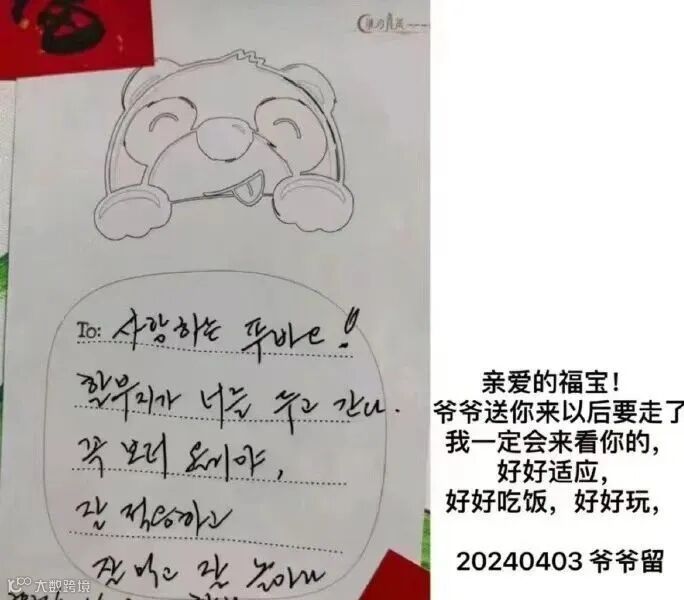 To: 사랑하는 푸바오!
할부지가 너를 두고 간다.
꼭 보러 올게야,
잘 적응하고
잘 먹고 잘 놀아라
亲爱的福宝！
爷爷送你来以后要走了
我一定会来看你的，
好好适应，
好好吃饭，好好玩，
20240403 爷爷留
大数跨境